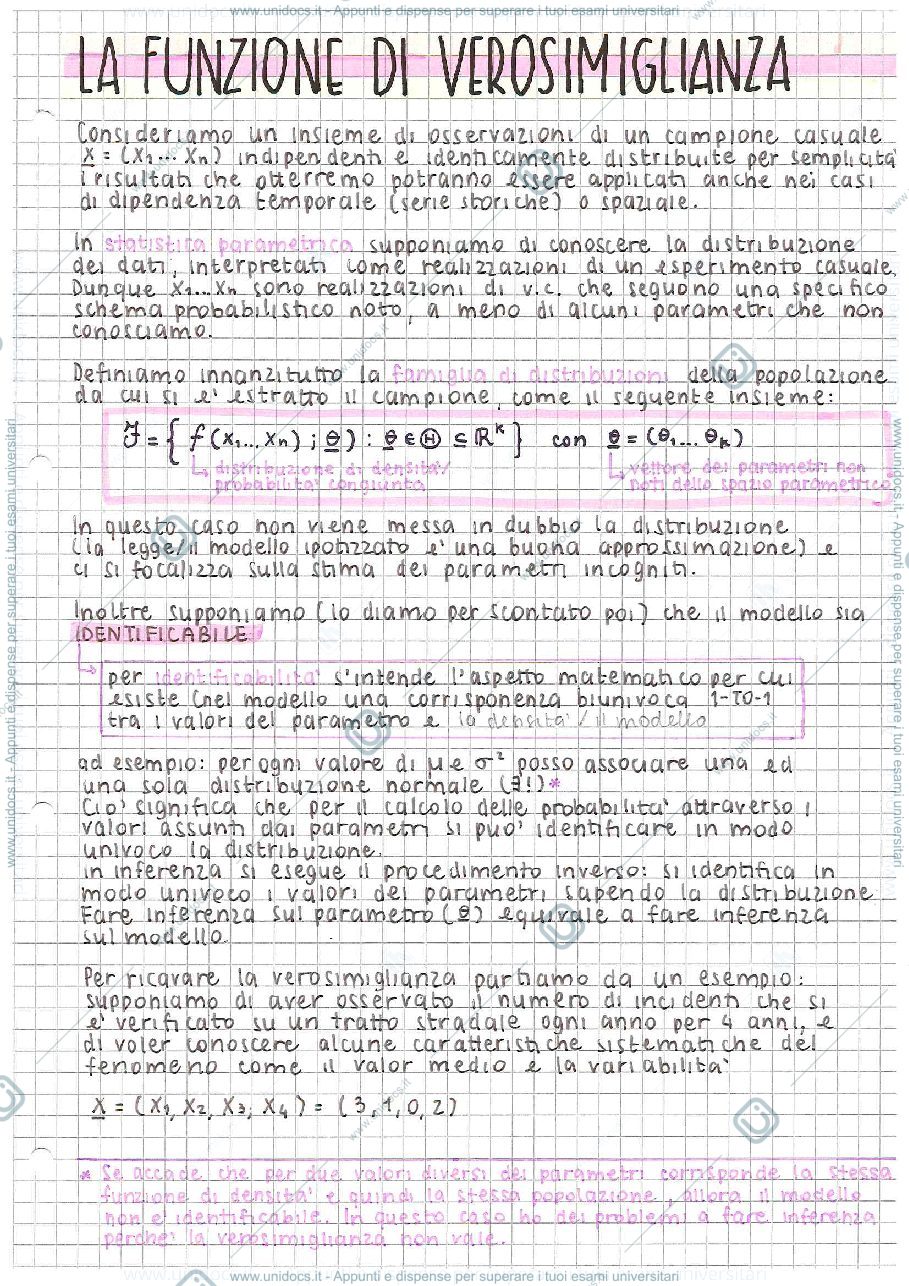 www.unidocs.it - Appunti e dispense per superare i tuoi esami universitari
LA FUNZIONE DI VEROSIMIGLIANZA
Consideriamo un insieme di osservazioni di un campione casuale
X = (X1... Xn) indipendenti e identicamente distribuite per semplicita'
i risultati che otterremo potranno essere applicati anche nei casi
di dipendenza temporale (serie storiche) o spaziale.
In statistica parametrica supponiamo di conoscere la distribuzione
dei dati, interpretati come realizzazioni di un esperimento casuale.
Dunque X1...Xn sono realizzazioni di v.c. che seguono una specifico
schema probabilistico noto, a meno di alcuni parametri che non
conosciamo.
Definiamo innanzitutto la famiglia di distribuzioni della popolazione
da cui si e' estratto il campione, come il seguente insieme:
ℱ = { f (x1... xn) ; θ ) : θ ∈ Θ ⊆ ℝᵏ } con θ = (θ1... θk)
distribuzione di densita'/ vettore dei parametri non
probabilita' congiunta noti dello spazio parametrico
In questo caso non viene messa in dubbio la distribuzione
(la legge/il modello ipotizzato e' una buona approssimazione) e
ci si focalizza sulla stima dei parametri incogniti.
Inoltre supponiamo (lo diamo per scontato poi) che il modello sia
IDENTIFICABILE
per identificabilita' s'intende l'aspetto matematico per cui
esiste (nel modello una corrisponenza biunivoca 1-TO-1
tra i valori del parametro e la densita' / il modello
ad esempio: per ogni valore di μ e σ² posso associare una ed
una sola distribuzione normale (∃!)*
Cio' significa che per il calcolo delle probabilita' attraverso i
valori assunti dai parametri si puo' identificare in modo
univoco la distribuzione.
in inferenza si esegue il procedimento inverso: si identifica in
modo univoco i valori dei parametri sapendo la distribuzione
Fare inferenza sul parametro (θ) equivale a fare inferenza
sul modello.
Per ricavare la verosimiglianza partiamo da un esempio:
supponiamo di aver osservato il numero di incidenti che si
e' verificato su un tratto stradale ogni anno per 4 anni, e
di voler conoscere alcune caratteristiche sistematiche del
fenomeno come il valor medio e la variabilita'
X = (X1, X2, X3, X4) = (3, 1, 0, 2)
* Se accade che per due valori diversi dei parametri corrisponde la stessa
funzione di densita' e quindi la stessa popolazione, allora il modello
non e' identificabile. In questo caso ho dei problemi a fare inferenza
perche' la verosimiglianza non vale.
www.unidocs.it - Appunti e dispense per superare i tuoi esami universitari
www.unidocs.it - Appunti e dispense per superare i tuoi esami universitari
www.unidocs.it - Appunti e dispense per superare i tuoi esami universitari